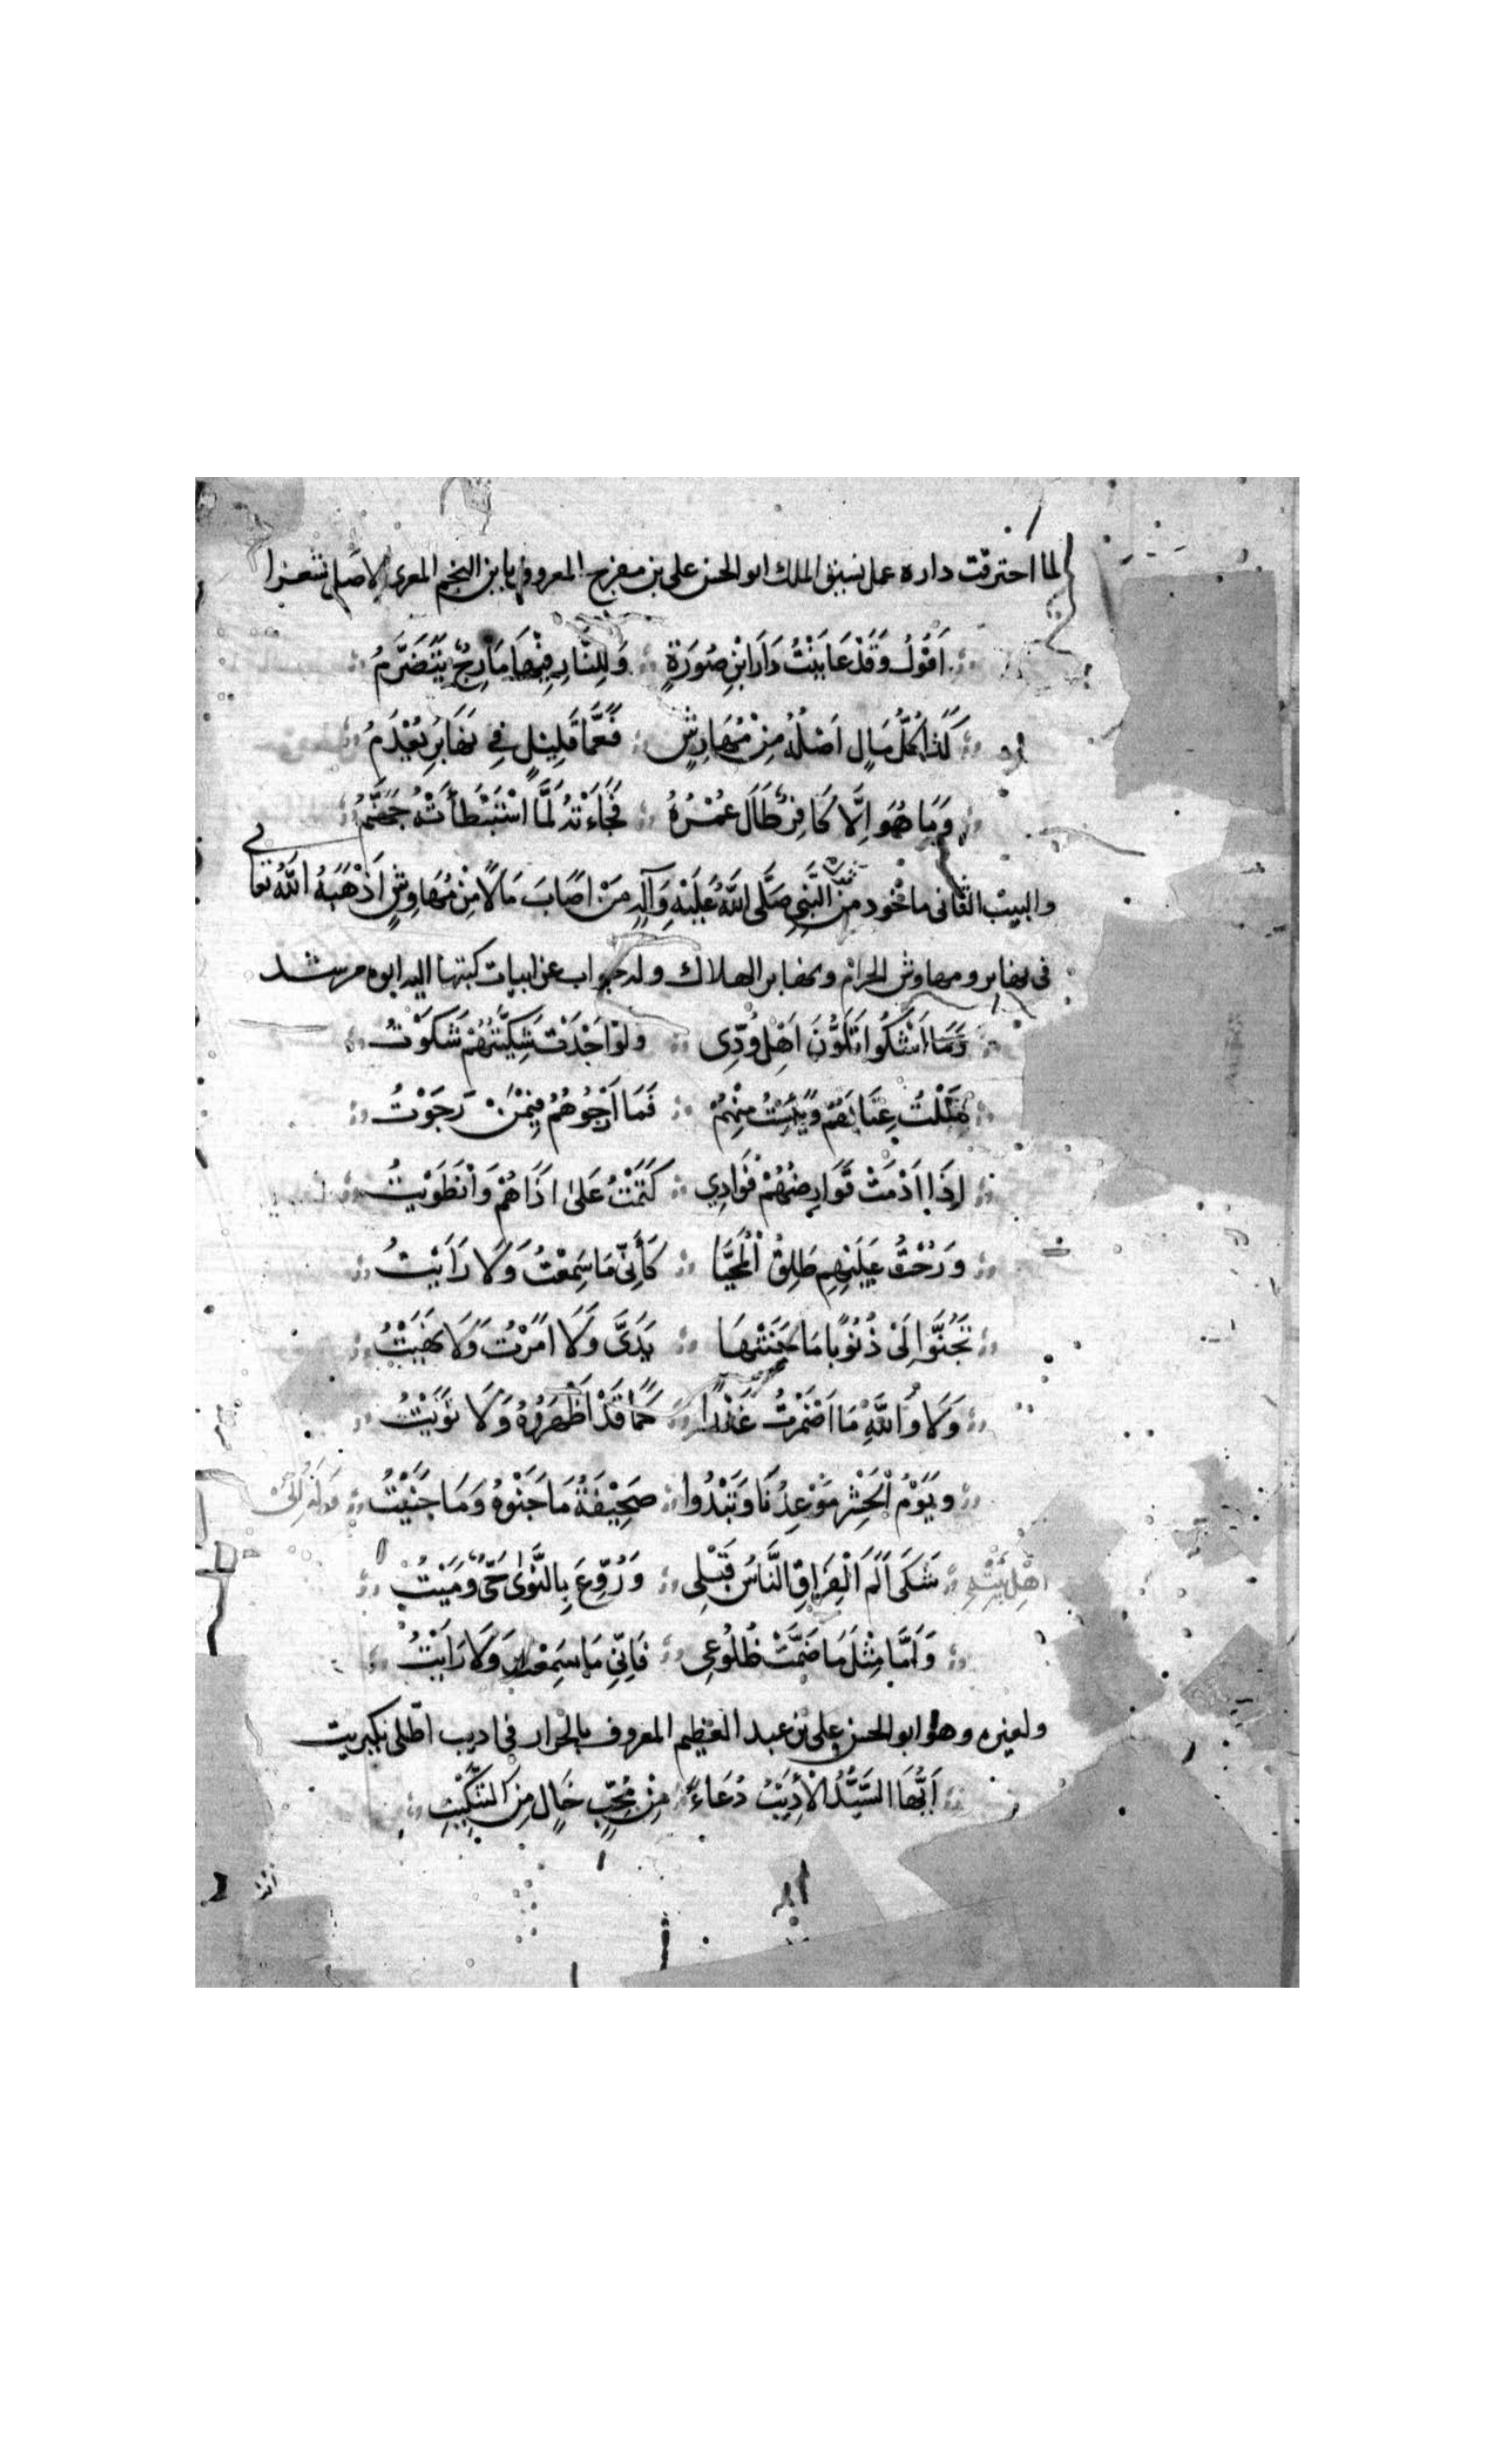 لما احترقت داره عمل نسيق الملك ابو الحسن على بن مفرج المعروف بابن النجم المعرى الاصل شعرا
اَقُوْلُ وَقَدْ عَايَنْتُ دَارَ ابْنِ صُوْرَةٍ وَلِلنَّارِ فِيْهَا مَارِجٌ يَتَضَرَّمُ
كَذَا كُلُّ مَالٍ اَصْلُهُ مِنْ مَهَاوِشٍ فَعَمَّا قَلِيْلٍ فِي نَهَابِرَ يُعْدَمُ
وَمَا هُوَ اِلَّا كَافِرٌ طَالَ عُمْرُهُ فَجَاءَتْهُ لَمَّا اسْتَبْطَأَتْهُ جَهَنَّمُ
والبيت الثانى ماخوذ من النَّبِيِ صَلَّى اللهُ عَلَيْهِ وَآلِهِ مَنْ اَصَابَ مَالًا مِنْ مَهَاوِشٍ اَذْهَبَهُ اللهُ تعالى
فى نهابر ومهاوش الحرام ونهابر الهلاك وله جواب عن ابيات كتبها اليه ابوه مرشد
وَمَا اَشْكُوا تَلَوُّنَ اَهْلِ وُدِّى وَلَوْ اَجْدَتْ شَكِيَّتُهُمْ شَكَوْتُ
مَلَلْتُ عِتَابَهُمْ وَيَئِسْتُ مِنْهُمْ فَمَا اَرْجُوْهُمُ فِيْمَنْ رَجَوْتُ
اِذَا اَدْمَتْ قَوَارِضُهُمْ فُوَادِي كَتَمْتُ عَلَى اَذَاهُمْ وَانْطَوَيْتُ
وَرُحْتُ عَلَيْهِمِ طَلِقَ الْمُحَيَّا كَأَنِّى مَا سَمِعْتُ وَلَا رَاَيْتُ
تَجَنَّوْا لِىْ ذُنُوْبًا مَا جَنَتْهَا يَدَىَّ وَلَا اَمَرْتُ وَلَا نَهَيْتُ
وَلَا وَاللهِ مَا اَضْمَرْتُ غَدْرًا كَمَا قَدْ اَظْهَرُوْهُ وَلَا نَوَيْتُ
وَيَوْمُ الْحَشْرِ مَوْعِدُنَا وَتَبْدُوا صَحِيْفَةُ مَا جَنَوْهُ وَمَا جَنَيْتُ وله الى
اهل بيته شَكَى اَلَمَ الْفِرَاقِ النَّاسُ قَبْلِى وَرُوِّعَ بِالنَّوَى حَىٌّ وَمَيْتُ
وَاَمَّا مِثْلَ مَا ضَمَّتْ ضُلُوْعِى فَاِنِّى مَا سَمِعْتُ وَلَا رَاَيْتُ
ولغيره وهو ابو الحسن على بن عبد العظيم المعروف بالجزار فى اديب اطلى بكبريت
اَيُّهَا السَّيِّدُ الْأَدِيْبُ دُعَاءً مِنْ مُحِبٍّ خَالٍ مِنَ التَّنْكِيْتِ